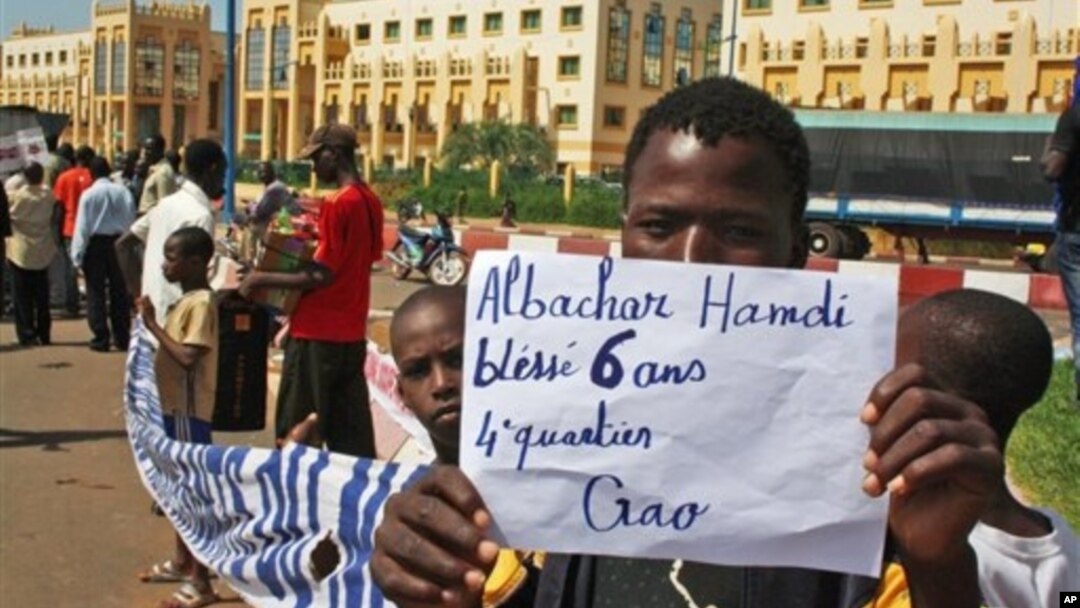 Albachar Hamdi
bléssé 6 ans
4e quartier
Gao
AP